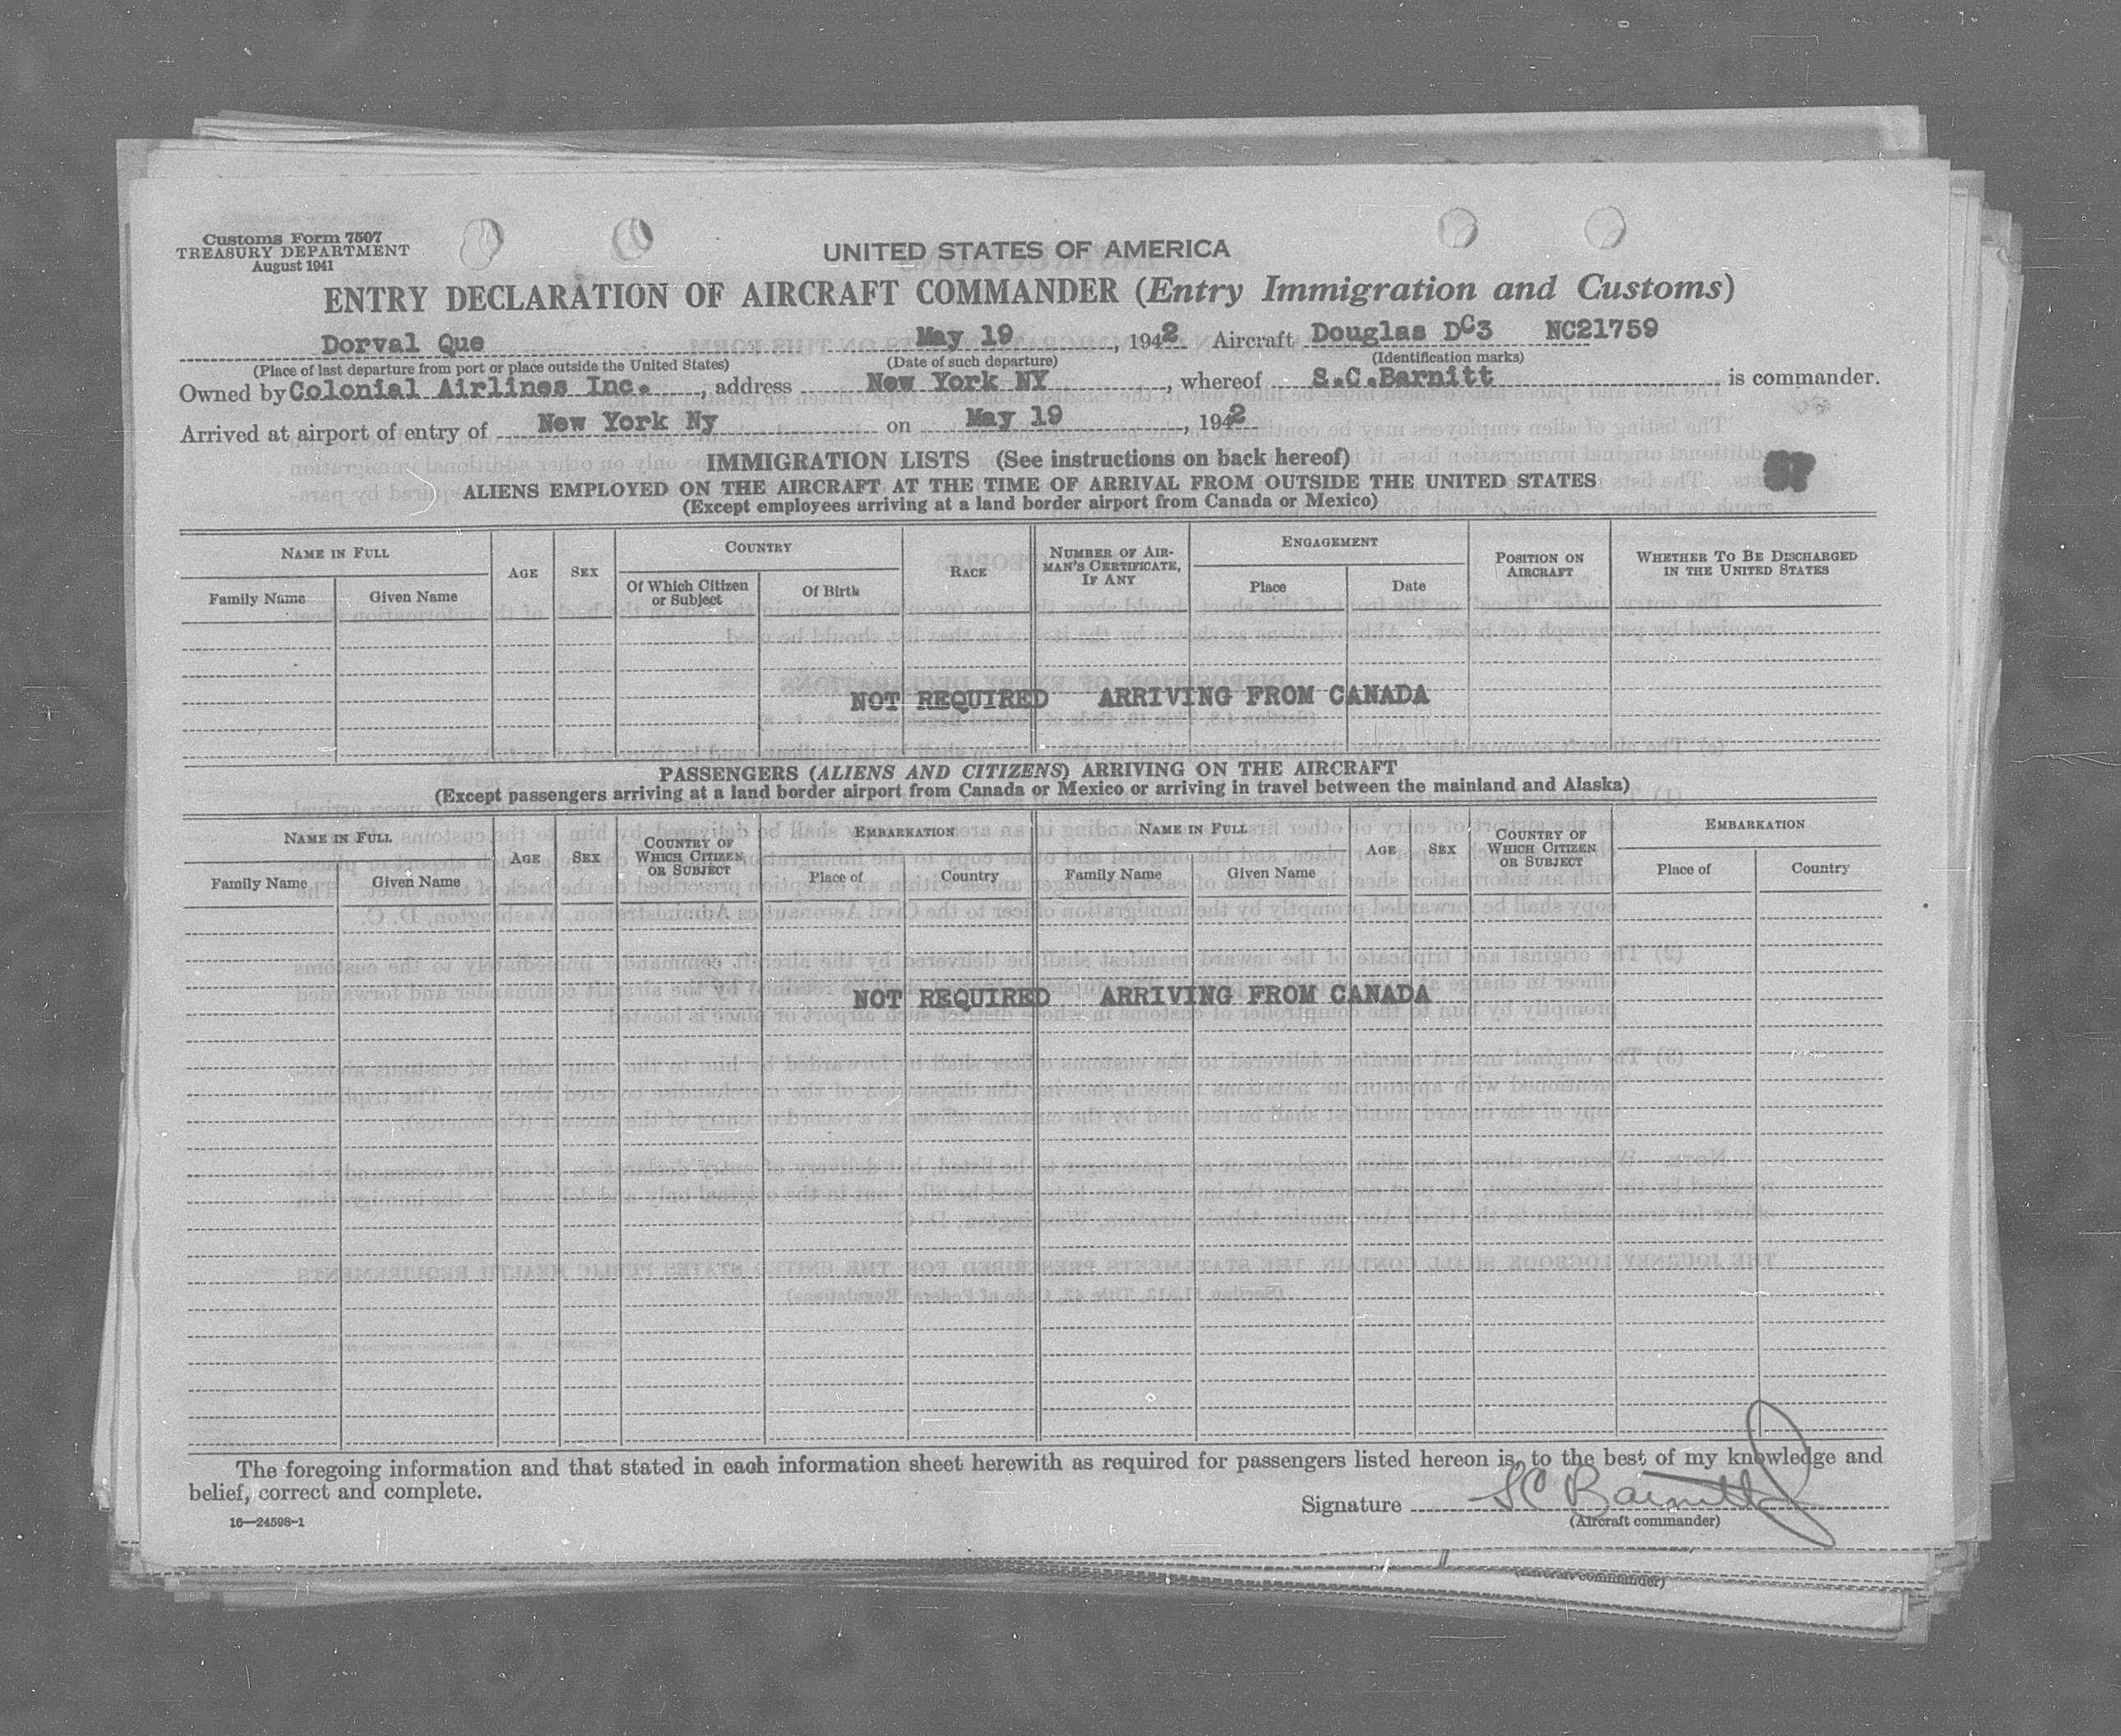 Customs Form 7507
TREASURY DEPARTMENT
August 1941
UNITED STATES OF AMERICA
ENTRY DECLARATION OF AIRCRAFT COMMANDER (Entry Immigration and Customs)
Dorval Que May 19, 1942 Aircraft Douglas DC3 NC21759
(Place of last departure from port or place outside the United States) (Date of such departure) (Identification marks)
Owned by Colonial Airlines Inc., address New York NY, whereof S.C.Barnitt is commander.
Arrived at airport of entry of New York Ny on May 19, 1942
IMMIGRATION LISTS (See instructions on back hereof)
ALIENS EMPLOYED ON THE AIRCRAFT AT THE TIME OF ARRIVAL FROM OUTSIDE THE UNITED STATES
(Except employees arriving at a land border airport from Canada or Mexico)
NAME IN FULL
Family Name
Given Name
AGE
SEX
COUNTRY
Of Which Citizen
or Subject
Of Birth
RACE
NUMBER OF AIR-
MAN'S CERTIFICATE,
IF ANY
ENGAGEMENT
Place
Date
POSITION ON
AIRCRAFT
WHETHER TO BE DISCHARGED
IN THE UNITED STATES
NOT REQUIRED ARRIVING FROM CANADA
PASSENGERS (ALIENS AND CITIZENS) ARRIVING ON THE AIRCRAFT
(Except passengers arriving at a land border airport from Canada or Mexico or arriving in travel between the mainland and Alaska)
NAME IN FULL
Family Name
Given Name
AGE
SEX
COUNTRY OF
WHICH CITIZEN
OR SUBJECT
EMBARKATION
Place of
Country
NAME IN FULL
Family Name
Given Name
AGE
SEX
COUNTRY OF
WHICH CITIZEN
OR SUBJECT
EMBARKATION
Place of
Country
NOT REQUIRED ARRIVING FROM CANADA
The foregoing information and that stated in each information sheet herewith as required for passengers listed hereon is, to the best of my knowledge and
belief, correct and complete.
Signature S C Barnitt
(Aircraft commander)
16—24598-1
(Aircraft commander)